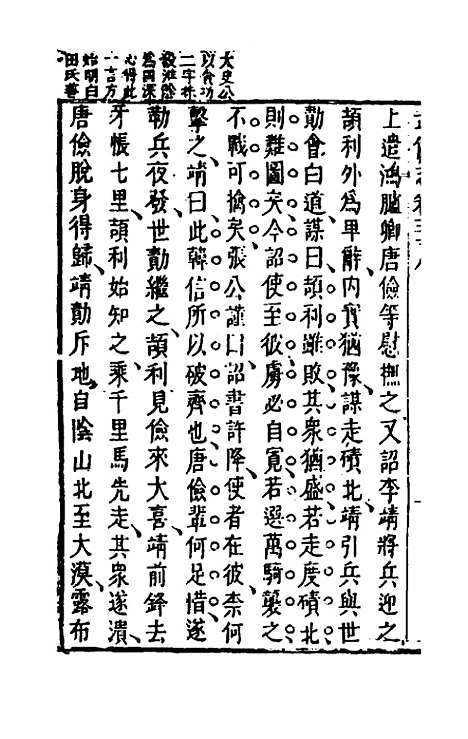 太史公
以貪功
二字誅
殺淮陰
爲固深
心得此
一言方
始明白
田氏
上遣鴻臚卿唐儉等慰撫之又詔李靖將兵迎之
頡利外爲卑辭内實猶豫謀走磧北靖引兵與世
勣會白道謀曰頡利雖敗其衆猶盛若走度磧北
則難圖矣今詔使至彼虜必自寛若選萬騎襲之
不戰可擒矣張公謹曰詔書許降使者在彼柰何
擊之靖曰此韓信所以破齊也唐儉輩何足惜遂
勒兵夜發世勣繼之頡利見儉來大喜靖前鋒去
牙帳七里頡利始知之乘千里馬先走其衆遂潰
唐儉脫身得歸靖勣斥地自陰山北至大漠露布